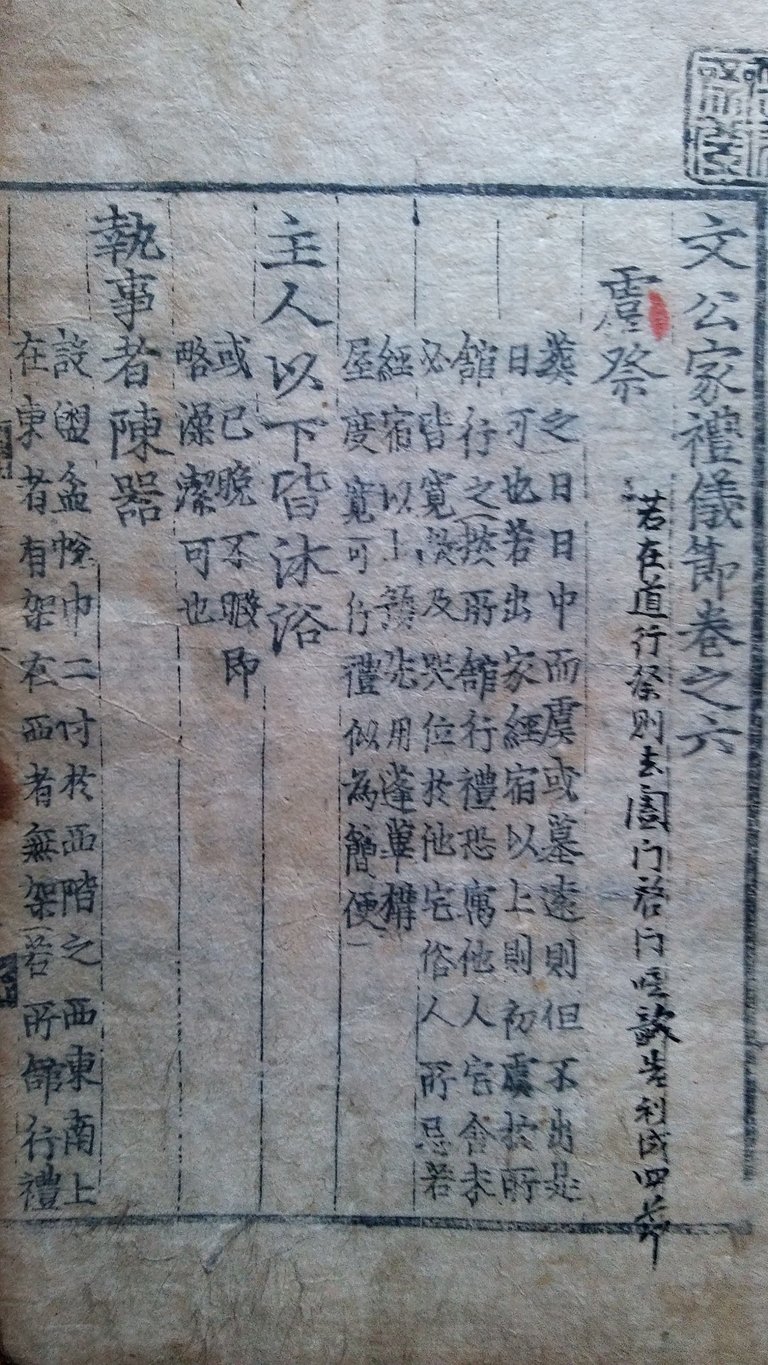 文公家禮儀節卷之六
虞祭
若在道行祭則去闔門啓門噫歆告利成四節
葬之日日中而虞或墓遠則但不出是
日可也若出家經宿以上則初虞於所
館行之(按所館行禮恐寓他人宅舍未
必皆寬敞及哭位於他宅俗人所忌若
經宿以上預先用蓬蓽構
屋度寬可行禮似為簡便)
主人以下皆沐浴
或已晚不暇即
略澡潔可也
執事者陳器
設盥盆帨巾二付於西階之西東南上
在東者有架在西者無架(若所館行禮